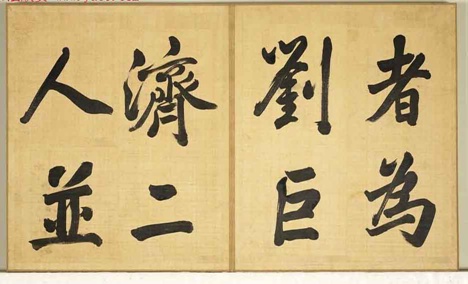 者為
劉巨
濟二
人並